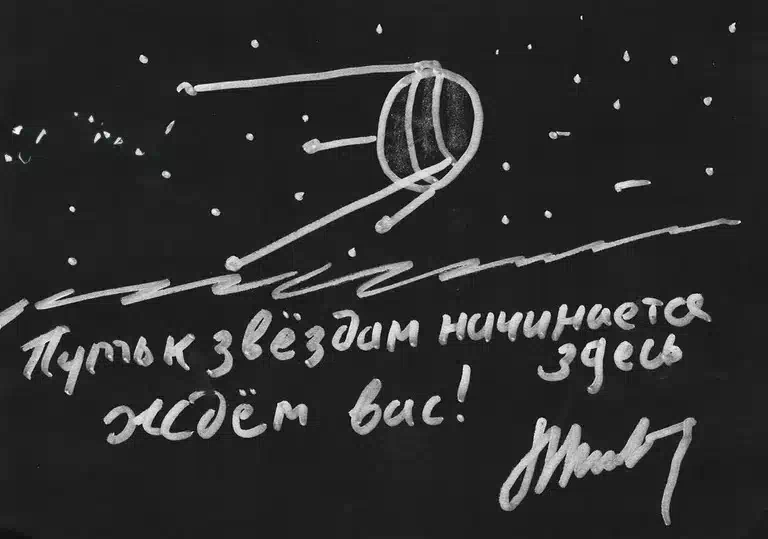 Путь к звёздам начинается
здесь
ждём вас!